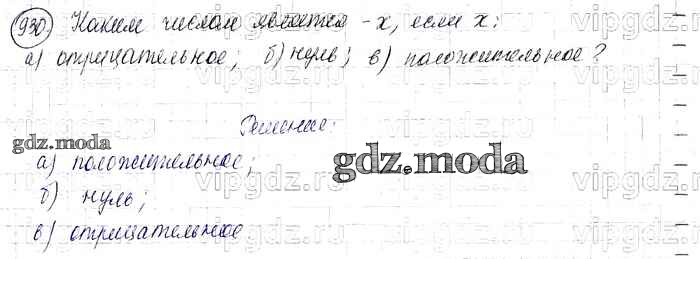 930. Каким числом является -x, если x:
а) отрицательное; б) нуль; в) положительное?
Решение:
gdz.moda
а) положительное;
gdz.moda
vipgdz.ru
б) нуль;
в) отрицательное